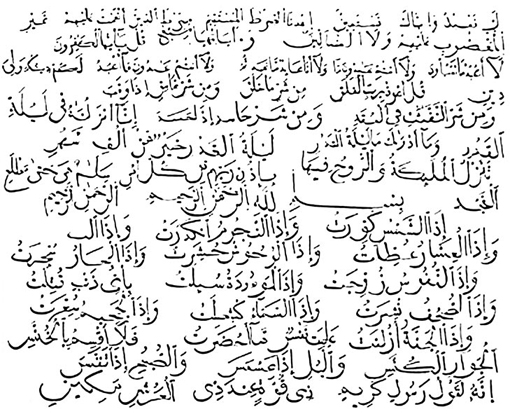 ك نعبد وإياك نستعين اهدنا الصرط المستقيم صرط الذين أنعمت عليهم غير
المغضوب عليهم ولا الضالين قل يأيها الكفرون
لا أعبد ما تعبدون ولا أنتم عبدون ما ولا أنا عابد ما ولا أنتم عبدون ما أعبد لكم دينكم ولى
دين قل أعوذ برب الفلق من شر ما خلق ومن شر غاسق إذا وقب
ومن شر النفثت في العقد ومن شر حاسد إذا حسد إنا أنزلنه في ليلة
القدر وما أدرك ما ليلة القدر ليلة القدر خير من ألف شهر
تنزل الملئكة والروح فيها بإذن ربهم من كل أمر سلم هي حتى مطلع
الفجر بسم الله الرحمن الرحيم الرحمن الرحيم
إذا الشمس كورت وإذا النجوم انكدرت وإذا
وإذا العشار عطلت وإذا الوحوش حشرت وإذا البحار سجرت
وإذا النفوس زوجت وإذا الموءودة سئلت بأي ذنب قتلت
وإذا الصحف نشرت وإذا السماء كشطت وإذا الجحيم سعرت
وإذا الجنة أزلفت علمت نفس ما أحضرت فلا أقسم بالخنس
الجوار الكنس واليل إذا عسعس والصبح إذا تنفس
إنه لقول رسول كريم ذي قوة عند ذي العرش مكين